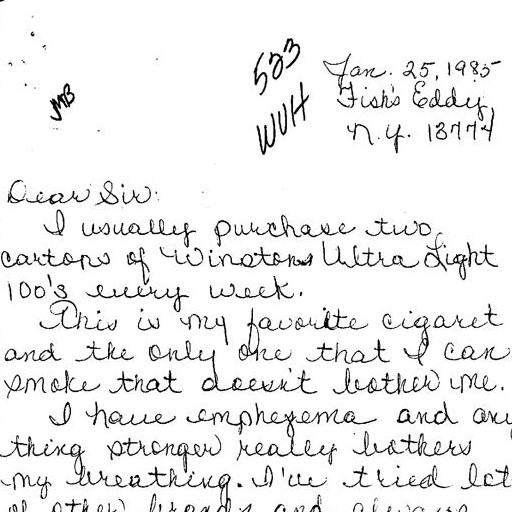 523
WUH
MB
Jan. 25, 1985
Fish's Eddy,
N.Y. 13774
Dear Sir:
I usually purchase two
cartons of Winstons Ultra Light
100's every week.
This is my favorite cigaret
and the only one that I can
smoke that doesn't bother me.
I have emphezema and any
thing stronger really bothers
my breathing. I've tried lot
of other brands and always